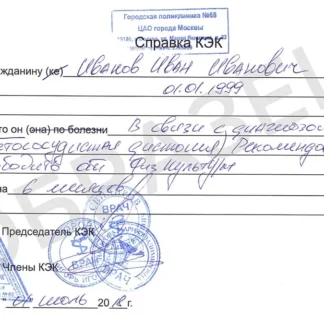 Городская поликлиника №68
ЦАО города Москвы
Справка КЭК
жданину (ке) Иванов Иван Иванович
01.01.1999
то он (она) по болезни В связи с диагнозом
етососудистая дистония) Рекоменда
ободить от физкультуры
на 6 месяцев
Председатель КЭК
Члены КЭК
ВРАЧ
ВРАЧ
ВРАЧ
" 01 " июль 20 г.
ОБРАЗЕЦ